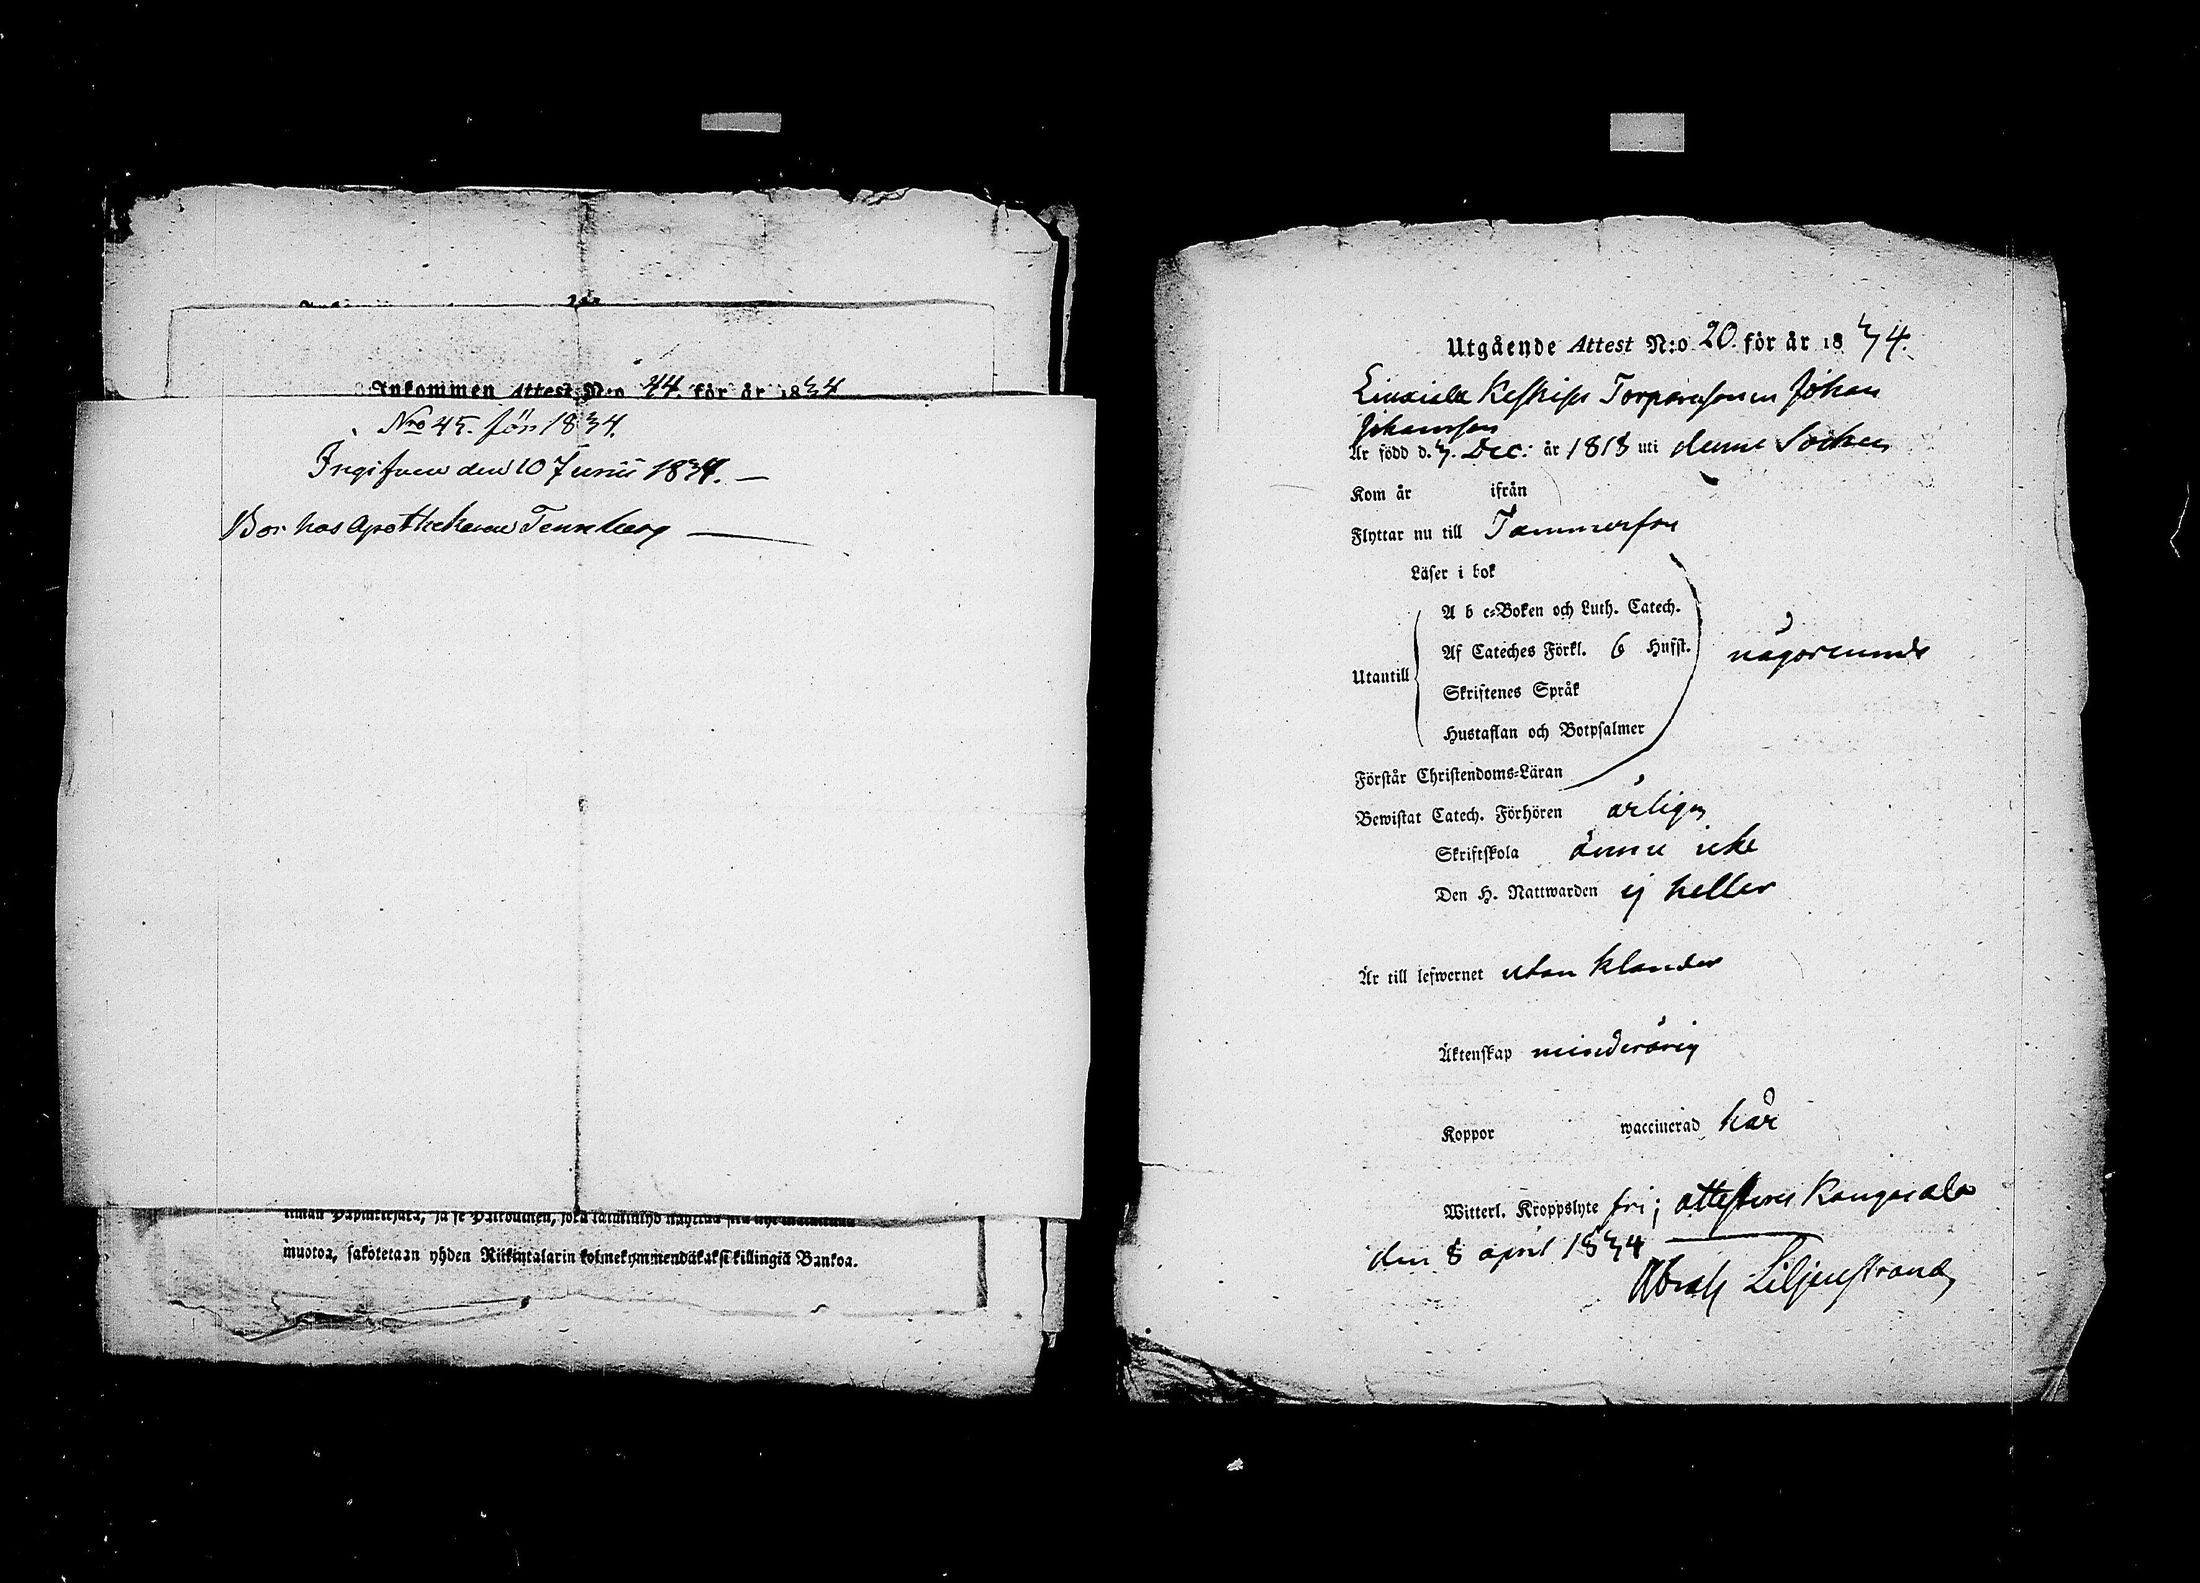 Inkommen Attest N:o 44. för år 1834
Nro 45. för 1834.
Ingifven den 10 Junii 1834. —
Bor hos Apothekaren Tennberg —
muotoa, sakotetaan yhden Riikintalarin kolmekymmendäkaksi killingiä Bankoa.
Utgående Attest N:o 20. för år 1834.
Liuxiala Keskises Torparesonen Johan
Johansson
Är född d. 3. Dec: år 1818 uti denne Socken
Kom år ifrån
Flyttar nu till Tammerfors
Läser i bok
A b c-Boken och Luth. Catech.
Af Cateches Förkl. 6 Hufst.
Utantill
någorlunda
Skriftenes Språk
Hustaflan och Botpsalmer
Förstår Christendoms-Läran
Bewistat Catech. Förhören årligen
Skriftskola ännu icke
Den H. Nattwarden ej heller
Är till lefwernet utan klander
Äktenskap minderårig
Koppor waccinerad här
Witterl. Kroppslyte fri; attesteras Kangasala
den 8 april 1834
Abrah Liljenstrand